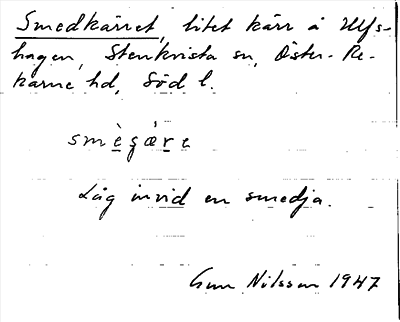 Smedkärret, litet kärr å Ulfs-
hagen, Stenkvista sn, Öster-Re-
karne hd, Söd l.
smèɡæ̀re
Låg invid en smedja.
Gun Nilsson 1947